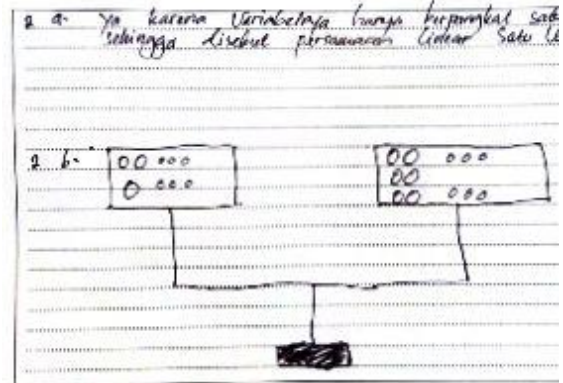 2 a. Ya karena Variabelnya hanya berpangkat sat
sehingga disebut persamaan linear Satu
2 b.